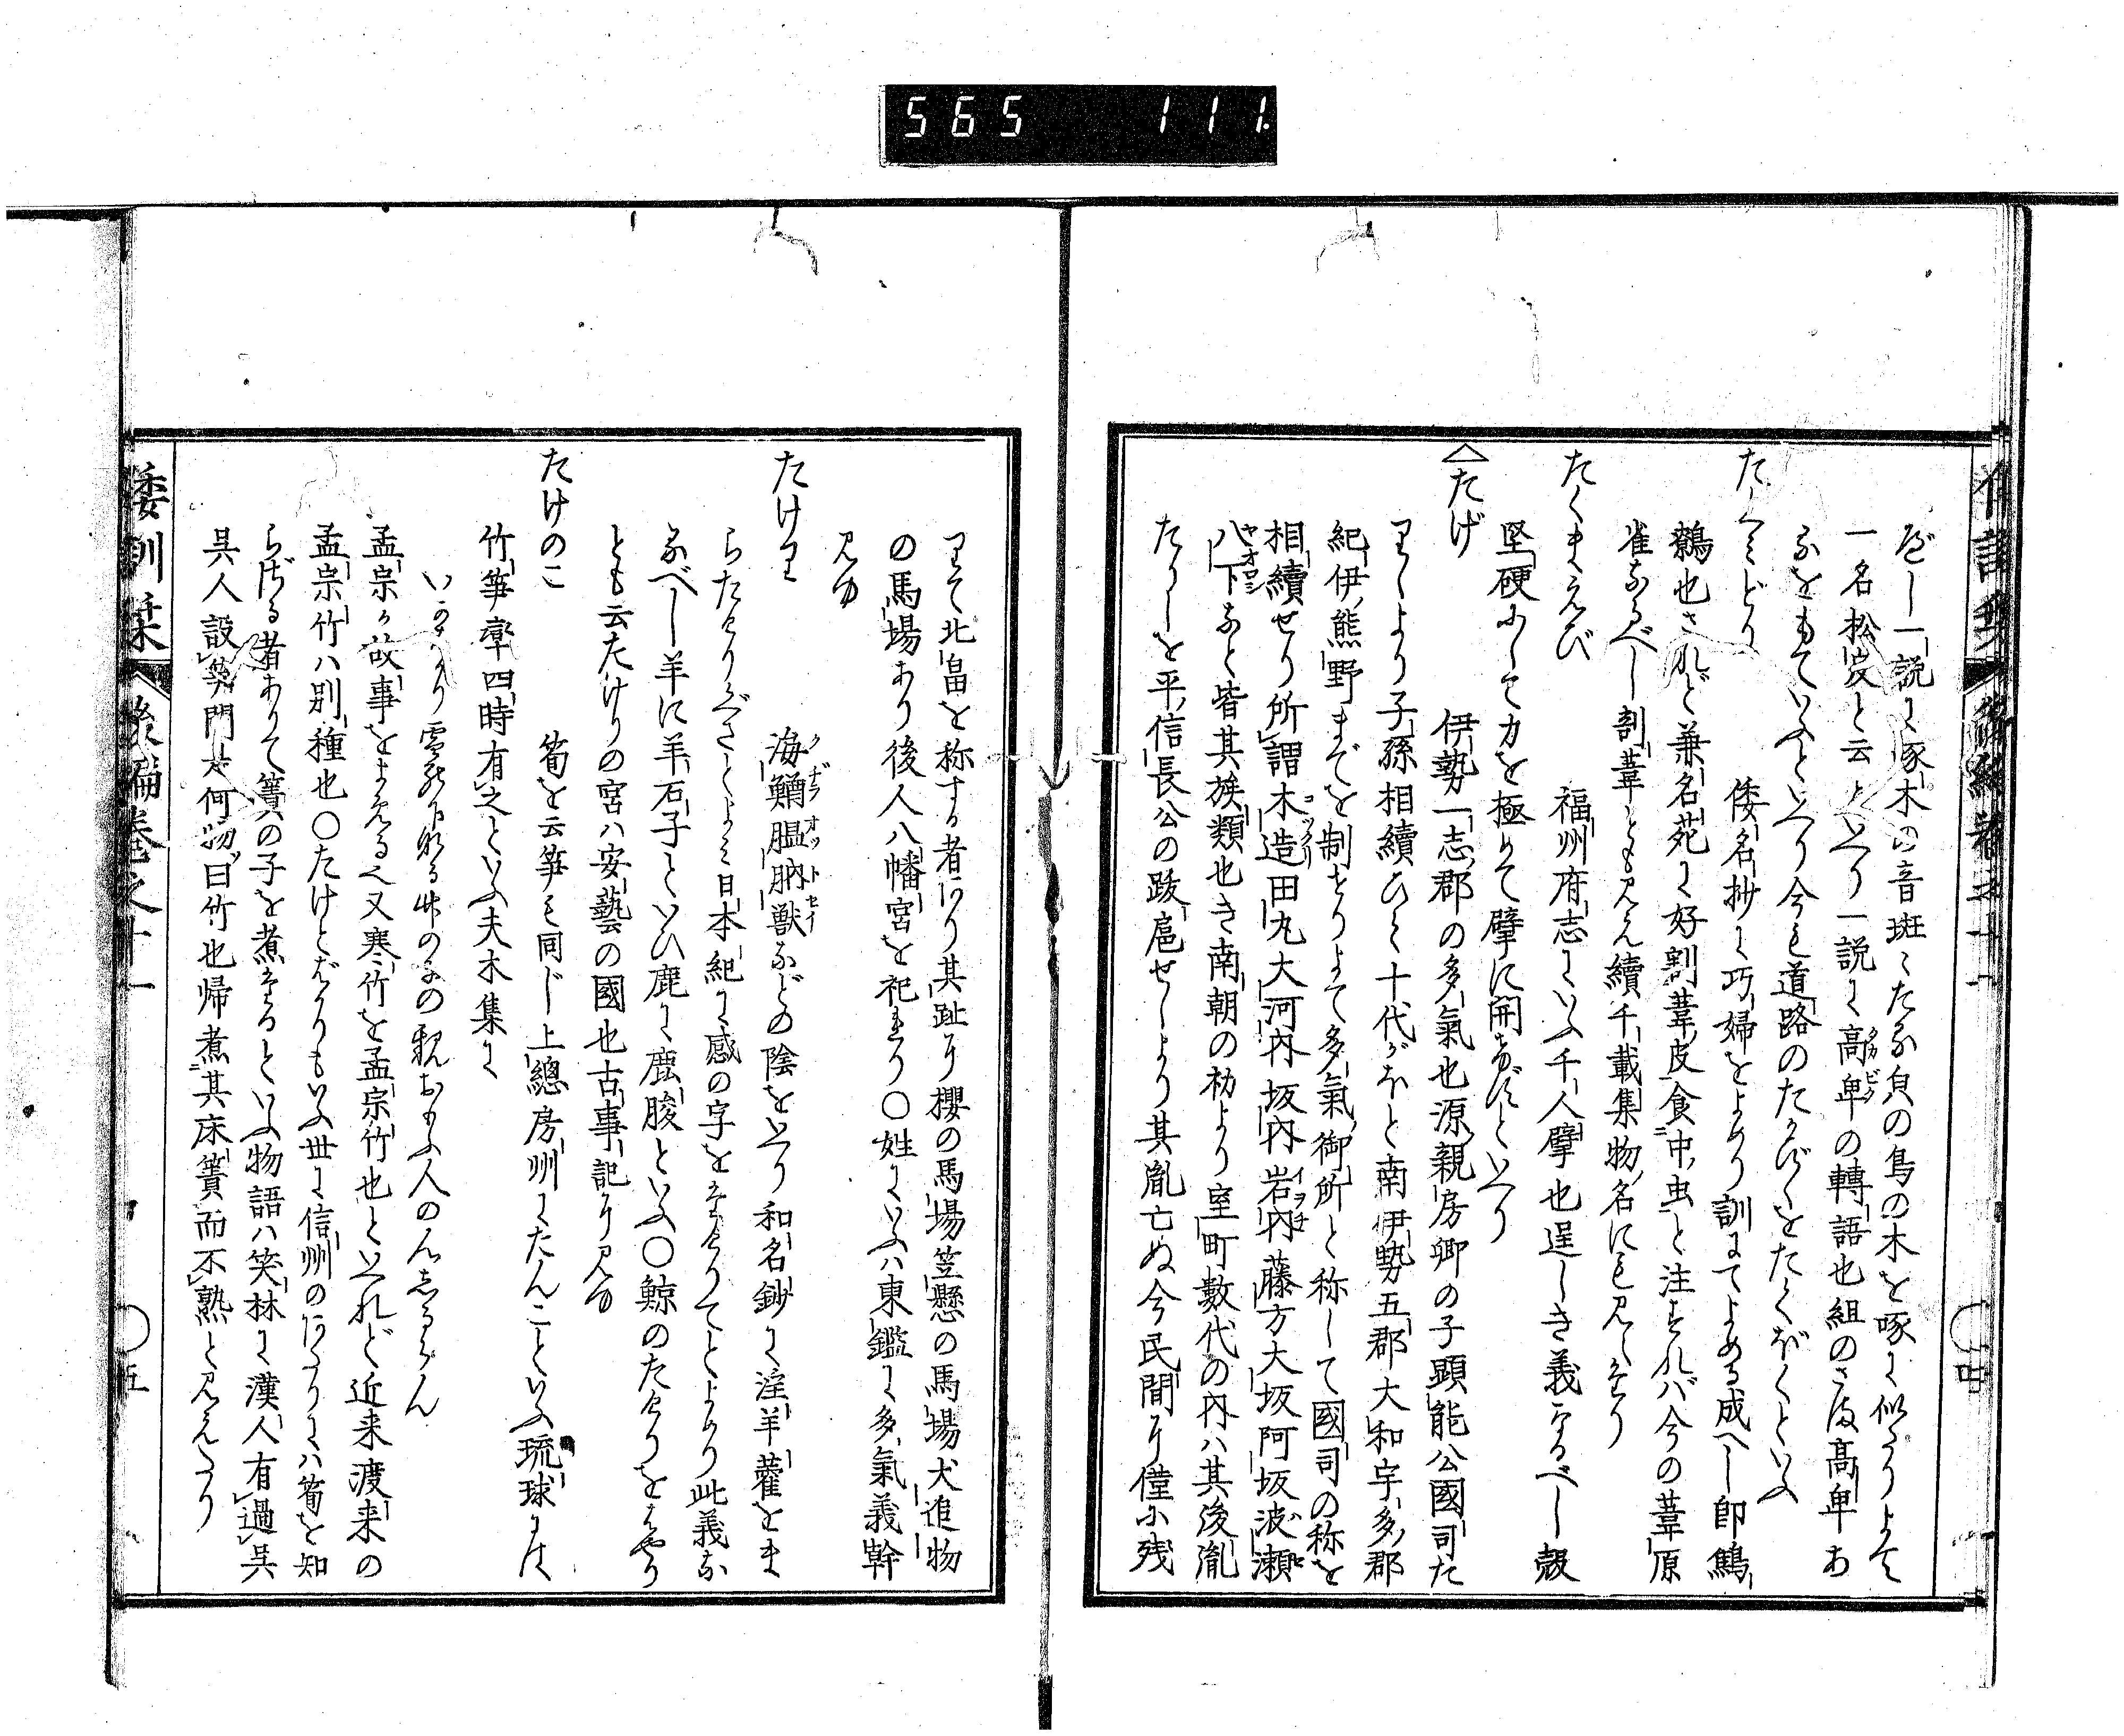 565 111
べし一説に啄木の音斑〻たる貝の鳥の木を啄に似たりよて
一名松皮と云といへり一説に高卑の轉語也組のさま高卑あ
るをもていふといへり今も道路のたかびくをたくぼくといふ
たくみどり 倭名抄に巧婦をよめり訓にてよめる成へし即鷦
鷯也されど兼名苑に好割葦皮食中虫と注すれバ今の葦原
雀なるべし割葦とも見え續千載集物名にも見えたり
たくまえび 福州府志にいふ千人擘也逞しき義なるべし殼
堅硬にして力を極めて擘に開かずといへり
たげ 伊勢一志郡の多氣也源親房卿の子顕能公國司た
りしより子孫相續ひて十代がほと南伊勢五郡大和宇多郡
紀伊熊野までを制せりよて多氣御所と称して國司の称を
相續せり所謂木造田丸大河内坂内岩内藤方大坂阿坂波瀬
八下なと皆其族類也き南朝の初より室町數代の内ハ其後胤
たりしを平信長公の跋扈せしより其胤亡ぬ今民間に僅に残
りて北畠を称する者あり其趾に櫻の馬場笠懸の馬場犬追物
の馬場あり後人八幡宮を祀れり〇姓にいふハ東鑑に多氣義幹
見ゆ
たけり 海鰌膃肭獣などの陰をいへり和名鈔に淫羊藿をま
らたけりぐさとよミ日本紀に感の字をたけりてとよめり此義な
るべし羊に羊石子といひ鹿に鹿朘といふ〇鯨のたけりをはやり
とも云たけりの宮ハ安藝の國也古事記に見ゆ
たけのこ 筍を云笋も同じ上總房州にたんこといふ琉球には
竹笋率四時有之といふ夫木集に
いかはかり雪殊に夜る竹の子の親おもふ人の心しるらん
孟宗か故事をよめる也又寒竹を孟宗竹也といへれど近来渡来の
孟宗竹ハ別種也〇たけとばかりもいふ世に信州のあたりにハ筍を知
らざる者ありて簀の子を煮たるといふ物語ハ笑林に漢人有過呉
呉人設笋問是何物曰竹也帰煮其床簀而不熟と見えたり
倭訓栞 後編巻之十一 〇五
倭訓栞 後編巻之十一 〇四